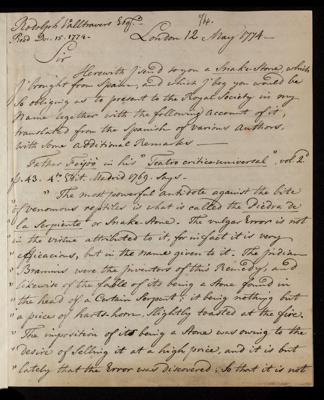 Rodolph Valltravers Esqr.
Read Dec. 15. 1774.
London 12 May 1774.
Sir
Herewith I send to you a Snake-Stone, which
I brought from Spain, and which I beg you would be
so obliging as to present to the Royal Society in my
Name together with the following Account of it,
translated from the Spanish of various Authors,
with some additional Remarks—
Father Feijoo in his "Teatro critico universal", vol. 2d
p. 43. 4th Edit. Madrid 1769. Says—
" The most powerful antidote against the bite
" of venomous reptiles is what is called the Piedra de
" la Serpiente or Snake Stone. The vulgar Error is not
" in the virtue attributed to it, for in fact it is very
" efficacious, but in the name given to it. The Indian
" Bramins were the inventors of this Remedy, and
" likewise of the fable of its being a Stone found in
" the head of a Certain Serpent; it being nothing but
" a piece of harts-horn, slightly toasted at the fire.
" The imposition of its being a Stone was owing to the
" desire of selling it at a high price, and it is but
" lately that the Error was discovered. So that it is not